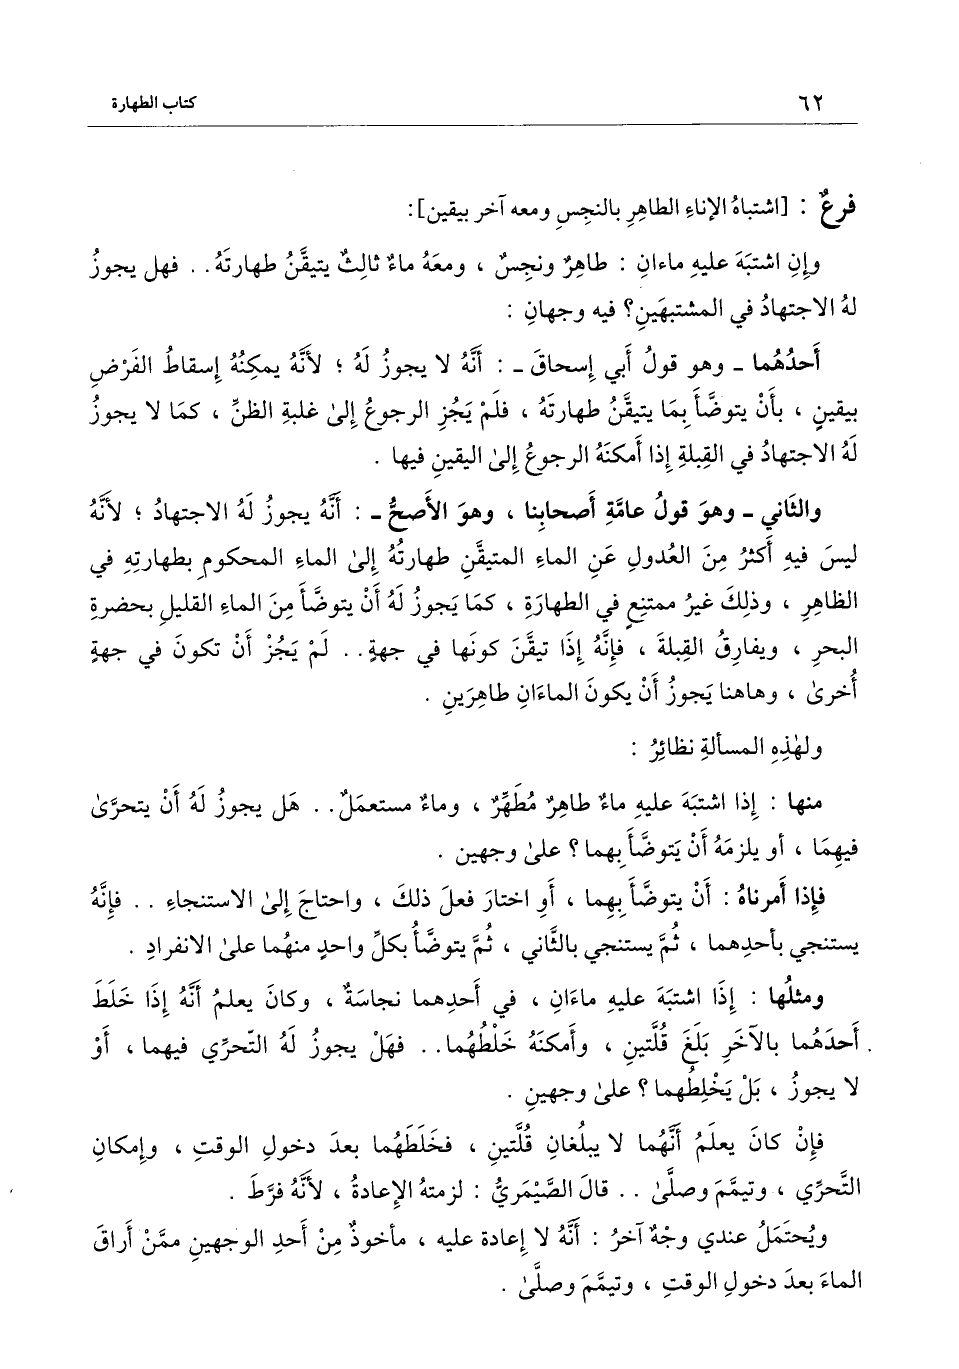 ٦٢
كتاب الطهارة
فرعٌ : [اشتباهُ الإناءِ الطاهرِ بالنجِسِ ومعه آخر بيقين]:
وإنِ اشتبَهَ عليهِ ماءانِ : طاهرٌ ونجِسٌ ، ومعَهُ ماءٌ ثالثٌ يتيقَّنُ طهارتَهُ . . فهل يجوزُ
لهُ الاجتهادُ في المشتبهَينِ؟ فيه وجهانِ :
أحدُهُما ـ وهو قولُ أبي إسحاقَ ـ : أنَّهُ لا يجوزُ لَهُ ؛ لأنَّهُ يمكِنُهُ إسقاطُ الفَرْضِ
بيقينٍ ، بأنْ يتوضَّأَ بِمَا يتيقَّنُ طهارتَهُ ، فلَمْ يَجُزِ الرجوعُ إلىٰ غلبةِ الظنِّ ، كمَا لا يجوزُ
لَهُ الاجتهادُ في القِبلةِ إذا أمكنَهُ الرجوعُ إلىٰ اليقينِ فيها .
والثَاني ـ وهوَ قولُ عامَّةِ أصحابِنا ، وهوَ الأَصحُّ ـ : أنَّهُ يجوزُ لَهُ الاجتهادُ ؛ لأنَّهُ
ليسَ فيهِ أكثرُ مِنَ العُدولِ عَنِ الماءِ المتيقَّنِ طهارتُهُ إلىٰ الماءِ المحكومِ بطهارتِهِ في
الظاهرِ ، وذلِكَ غيرُ ممتنِعٍ في الطهارَةِ ، كمَا يَجوزُ لَهُ أنْ يتوضَّأَ مِنَ الماءِ القليلِ بحضرةِ
البحرِ ، ويفارِقُ القِبلةَ ، فإنَّهُ إذَا تيقَّنَ كونَها في جهةٍ . . لَمْ يَجُزْ أنْ تكونَ في جهةٍ
أُخرىٰ ، وهاهنا يَجوزُ أنْ يكونَ الماءَانِ طاهِرَينِ .
ولهٰذِهِ المسألةِ نظائِرُ :
منها : إذا اشتبَهَ عليهِ ماءٌ طاهرٌ مُطَهِّرٌ ، وماءٌ مستعمَلٌ . . هَل يجوزُ لَهُ أنْ يتحرَّىٰ
فيهِمَا ، أو يلزمَهُ أنْ يَتوضَّأَ بِهما؟ علىٰ وجهين .
فإذا أمرناهُ : أنْ يتوضَّأَ بِهِما ، أوِ اختارَ فعلَ ذلكَ ، واحتاجَ إلىٰ الاستنجاءِ . . فإنَّهُ
يستنجي بأحدِهما ، ثُمَّ يستنجي بالثَّاني ، ثُمَّ يتوضَّأُ بكلِّ واحدٍ منهُما علىٰ الانفرادِ .
ومثلُها : إذَا اشتبَهَ عليهِ ماءَانِ ، في أحدِهما نجاسَةٌ ، وكانَ يعلمُ أنَّهُ إذَا خَلَطَ
أحدَهُما بالآخَرِ بَلَغَ قُلَّتينِ ، وأمكنَهُ خَلْطُهُما . . فهَلْ يجوزُ لَهُ التحرِّي فيهما ، أوْ
لا يجوزُ ، بَلْ يَخْلِطُهما؟ علىٰ وجهينِ .
فإنْ كانَ يعلَمُ أنَّهُما لا يبلُغانِ قُلَّتينِ ، فخَلَطَهُما بعدَ دخولِ الوقتِ ، وإمكانِ
التَّحرِّي ، وتيمَّمَ وصلَّىٰ . . قالَ الصَّيْمَريُّ : لزمتهُ الإعادةُ ، لأنَّهُ فرَّطَ .
ويُحتَمَلُ عندي وجْهٌ آخرُ : أنَّهُ لا إعادة عليه ، مأخوذٌ مِنْ أحدِ الوجهينِ ممَّنْ أراقَ
الماءَ بعدَ دخولِ الوقتِ ، وتيمَّمَ وصلَّىٰ .